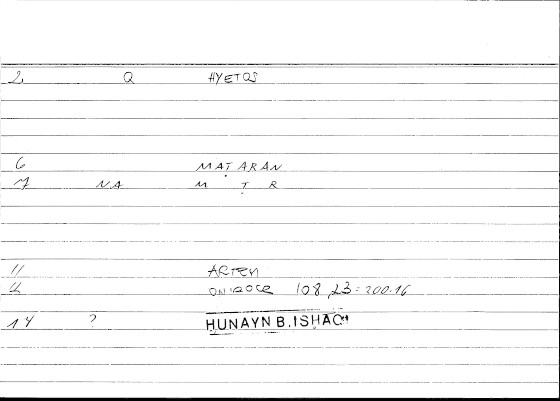 2 Q HYETOS
6 MAṬARAN
7 NA M Ṭ R
11 ARTEM
12 ONIROCR 108,23=200.16
14 ? ḤUNAYN B.ISḤAQ